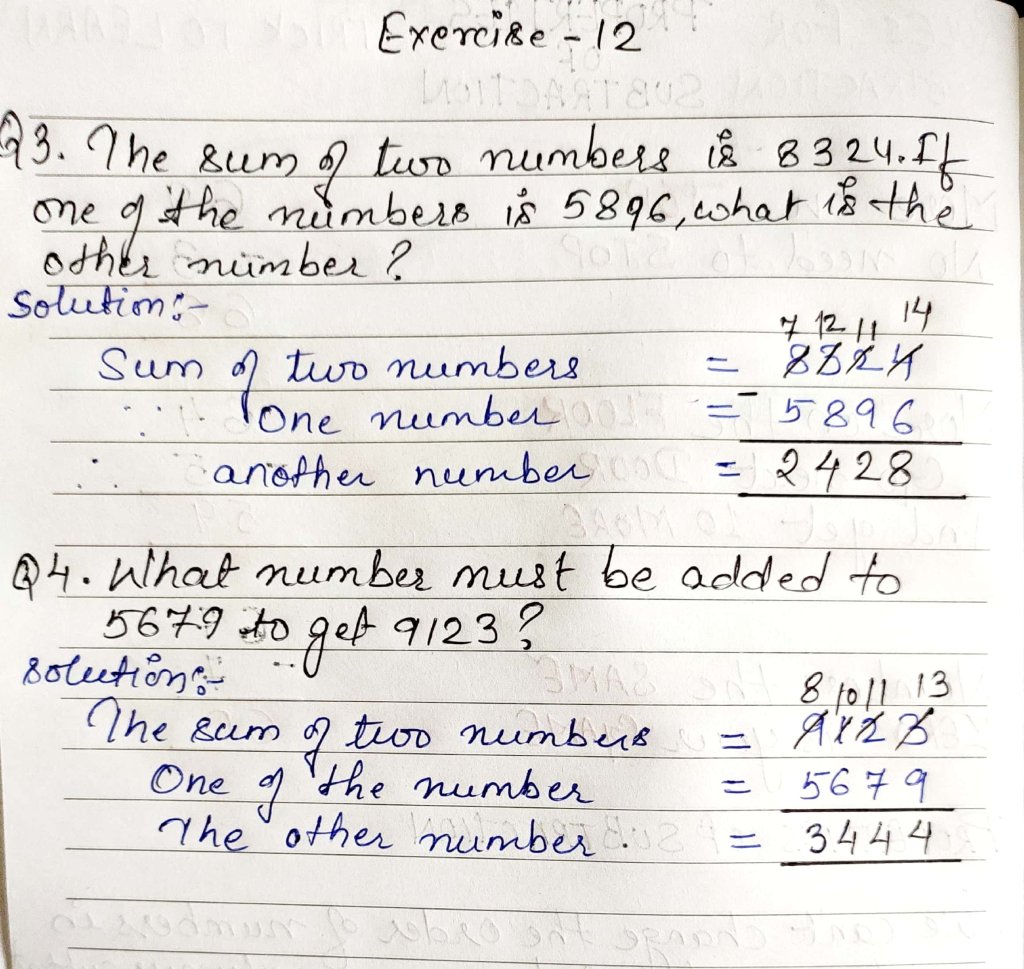 Exercise - 12
Q3. The sum of two numbers is 8324. If
one of the numbers is 5896, what is the
other number?
Solution:-
7 12 11 14
Sum of two numbers = 8324
∵ One number = - 5896
∴ another number = 2428
Q4. What number must be added to
5679 to get 9123?
Solution:-
8 10 11 13
The sum of two numbers = 9123
One of the number = 5679
The other number. = 3444